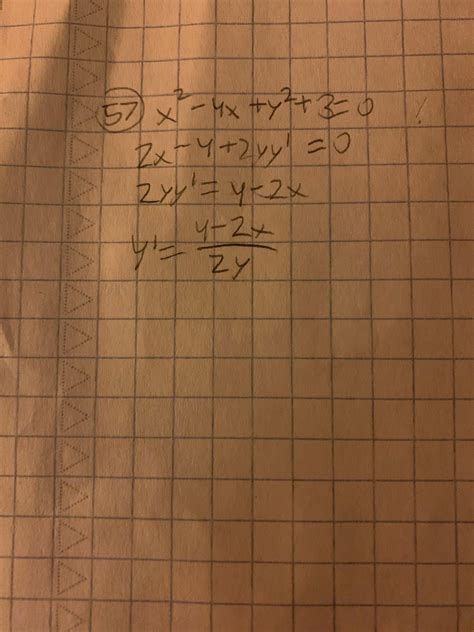 57 x² - 4x + y² + 3 = 0
2x - 4 + 2yy' = 0
2yy' = 4 - 2x
y' = (4 - 2x)/(2y)